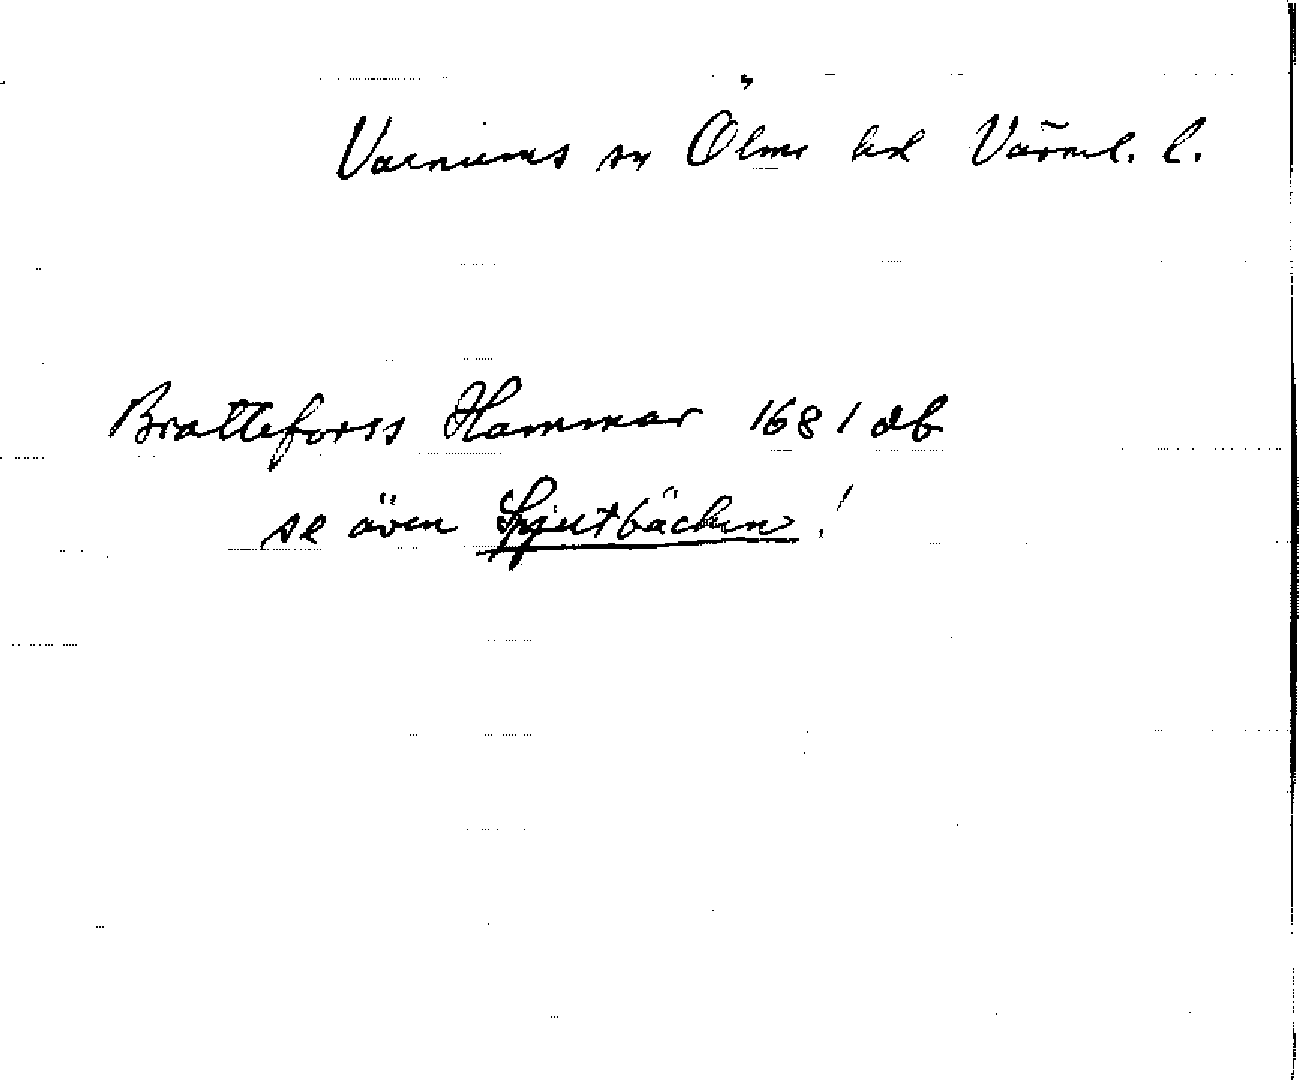 Varnums sn Ölme hd Värml. l.
Bratteforss Hammar 1681 db
se även Spjutbäcken!